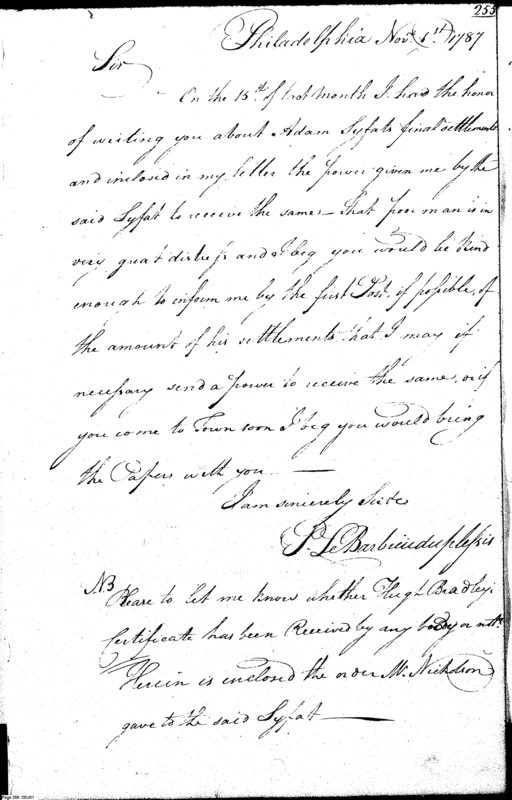 255
Philadelphia Novr. 1st 1787
Sir
On the 15th of last Month I had the honor
of writing you about Adam Syfats final settlements
and inclosed in my letter the power given me by the
said Syfat to receive the same – that poor man is in
very great distress and I beg you would be kind
enough to inform me by the first Post, if possible, of
the amount of his settlements that I may if
necessary send a power to receive the same, or if
you come to Town soon I beg you would bring
the Papers with you —
I am sincerely Sir &c
P. Le Barbier duplessis
NB
Please to let me know whether Hugh Bradley's
Certificate has been Received by any body or not.
Herein is enclosed the order Mr. Nicholson
gave to the said Syfat —
Page 255